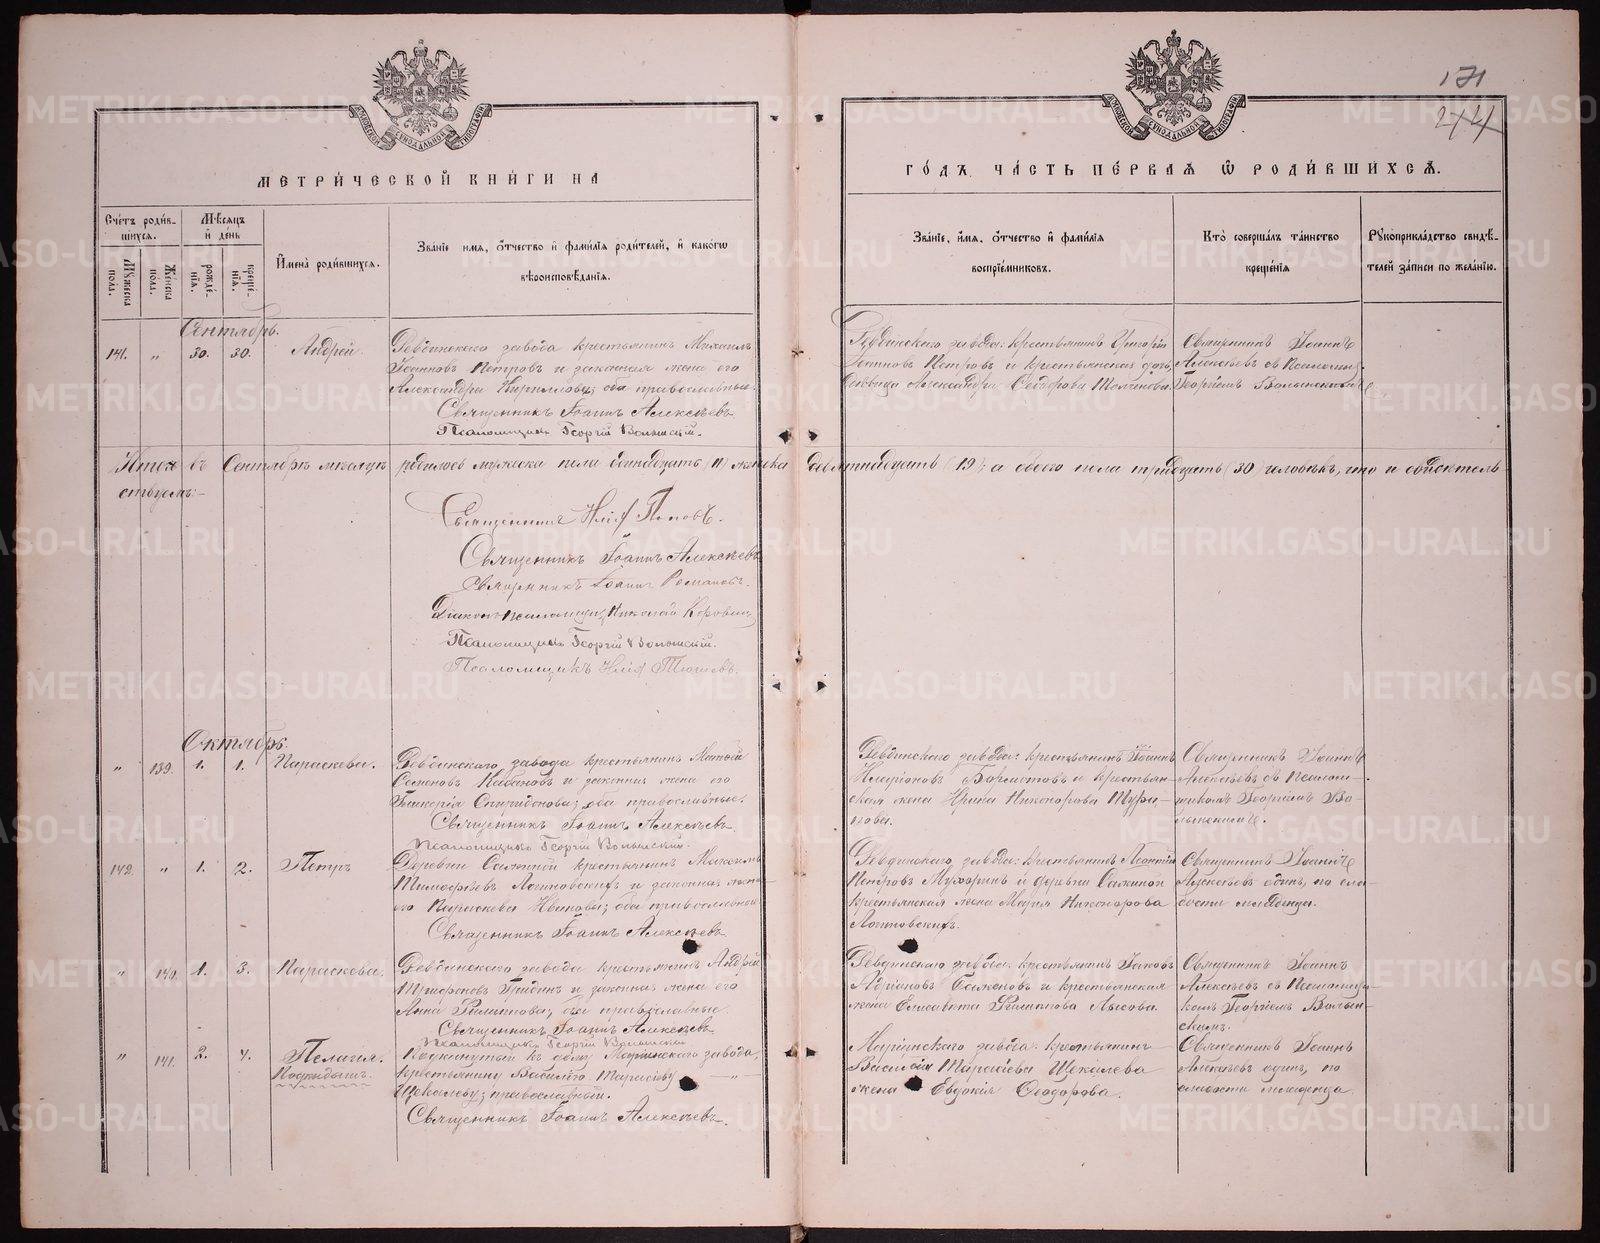 171
244
МЕТРИ́ЧЕСКОЙ КНИ́ГИ НА
ГО́ДЪ ЧА́СТЬ ПЕ́РВАЯ Ѿ РОДИ́ВШИХСЯ.
Сче́тъ роди́в-
шихся.
Му́жеска по́ла.
Же́нска по́ла.
Мѣ́сяцъ
и де́нь
рожде́нїя.
креще́нїя.
И҆мена̀ роди́вшихся.
Зва́нїе имя, о҆́тчество и҆ фами́лїя роди́телей, и҆ како́гѡ
вѣроисповѣ́данїя.
Зва́нїе, и҆́мя, о҆́тчество и҆ фами́лїя
воспрїе́мниковъ.
Кто̀ соверша́лъ та́инство
креще́нїя
Рꙋкоприкла́дство свидѣ́-
телей за́писи по жела́нїю.
Сентябрь.
141. " 30. 30. Андрей.
Ревдинскаго завода крестьянинъ Михаилъ
Іоанновъ Петровъ и законная жена его
Александра Кириллова; оба православные.
Священникъ Іоаннъ Алексѣевъ
Псаломщикъ Георгій Волынскій.
Ревдинскаго завода: крестьянинъ Григорій
Іоанновъ Петровъ и крестьянская дочь,
дѣвица Александра Ѳеодорова
Священникъ Іоаннъ
Алексѣевъ съ Псаломщ.
Георгіемъ Волынскимъ
Итого въ Сентябрѣ мѣсяцѣ родилось мужеска пола одиннадцать (11) женска девятнадцать (19); а обоего пола тридцать (30) человѣкъ, что и свидѣтель-
ствуемъ:-
Священникъ Илія Поповъ.
Священникъ Іоаннъ Алексѣевъ
Священникъ Іоаннъ Романовъ.
Діаконъ псаломщикъ Николай Коровинъ
Псаломщикъ Георгій Волынскій.
Псаломщикъ Илія
Октябрь.
" 139. 1. 1. Параскева.
Ревдинскаго завода крестьянинъ Матѳій
Семеновъ Кабановъ и законная жена его
Гликерія Спиридонова; оба православные.
Священникъ Іоаннъ Алексѣевъ.
Псаломщикъ Георгій Волынскій.
Ревдинскаго завода: крестьянинъ Іоаннъ
Иларіоновъ и крестьян-
ская жена Ирина Никонорова
Священникъ Іоаннъ
Алексѣевъ съ Псалом-
щикомъ Георгіемъ Во-
лынскимъ.
142. " 1. 2. Петръ
Деревни крестьянинъ Максимъ
Тимоѳѣевъ Логиновскихъ и законная жена
его Параскева Иванова; оба православные
Священникъ Іоаннъ Алексѣевъ
Ревдинскаго завода: крестьянинъ Леонтій
Петровъ Мухоринъ и деревни
крестьянская жена Марія Никонорова
Логиновскихъ.
Священникъ Іоаннъ
Алексѣевъ одинъ, по сла-
бости младенца.
" 140. 1. 3. Параскева.
Ревдинскаго завода крестьянинъ Андрей
Трифоновъ и законная жена его
Анна Филиппова; оба православные.
Священникъ Іоаннъ Алексѣевъ
Псаломщикъ Георгій Волынскій
Ревдинскаго завода: крестьянинъ Іаковъ
Адріановъ и крестьянская
жена Елисавета Филиппова Лысова.
Священникъ Іоаннъ
Алексѣевъ съ Псаломщи-
комъ Георгіемъ Волын-
скимъ.
" 141. 2. 4. Пелагія.
Подкидышъ.
Подкинутый къ дому Маріинскаго завода,
крестьянину Василію Тарасіеву
Щекалеву; православный.
Священникъ Іоаннъ Алексѣевъ.
Маріинскаго завода: крестьянинъ
Василій Тарасіева Щекалева
жена Евдокія Ѳеодорова.
Священникъ Іоаннъ
Алексѣевъ одинъ, по
слабости младенца.
METRIKI.GASO-URAL.RU